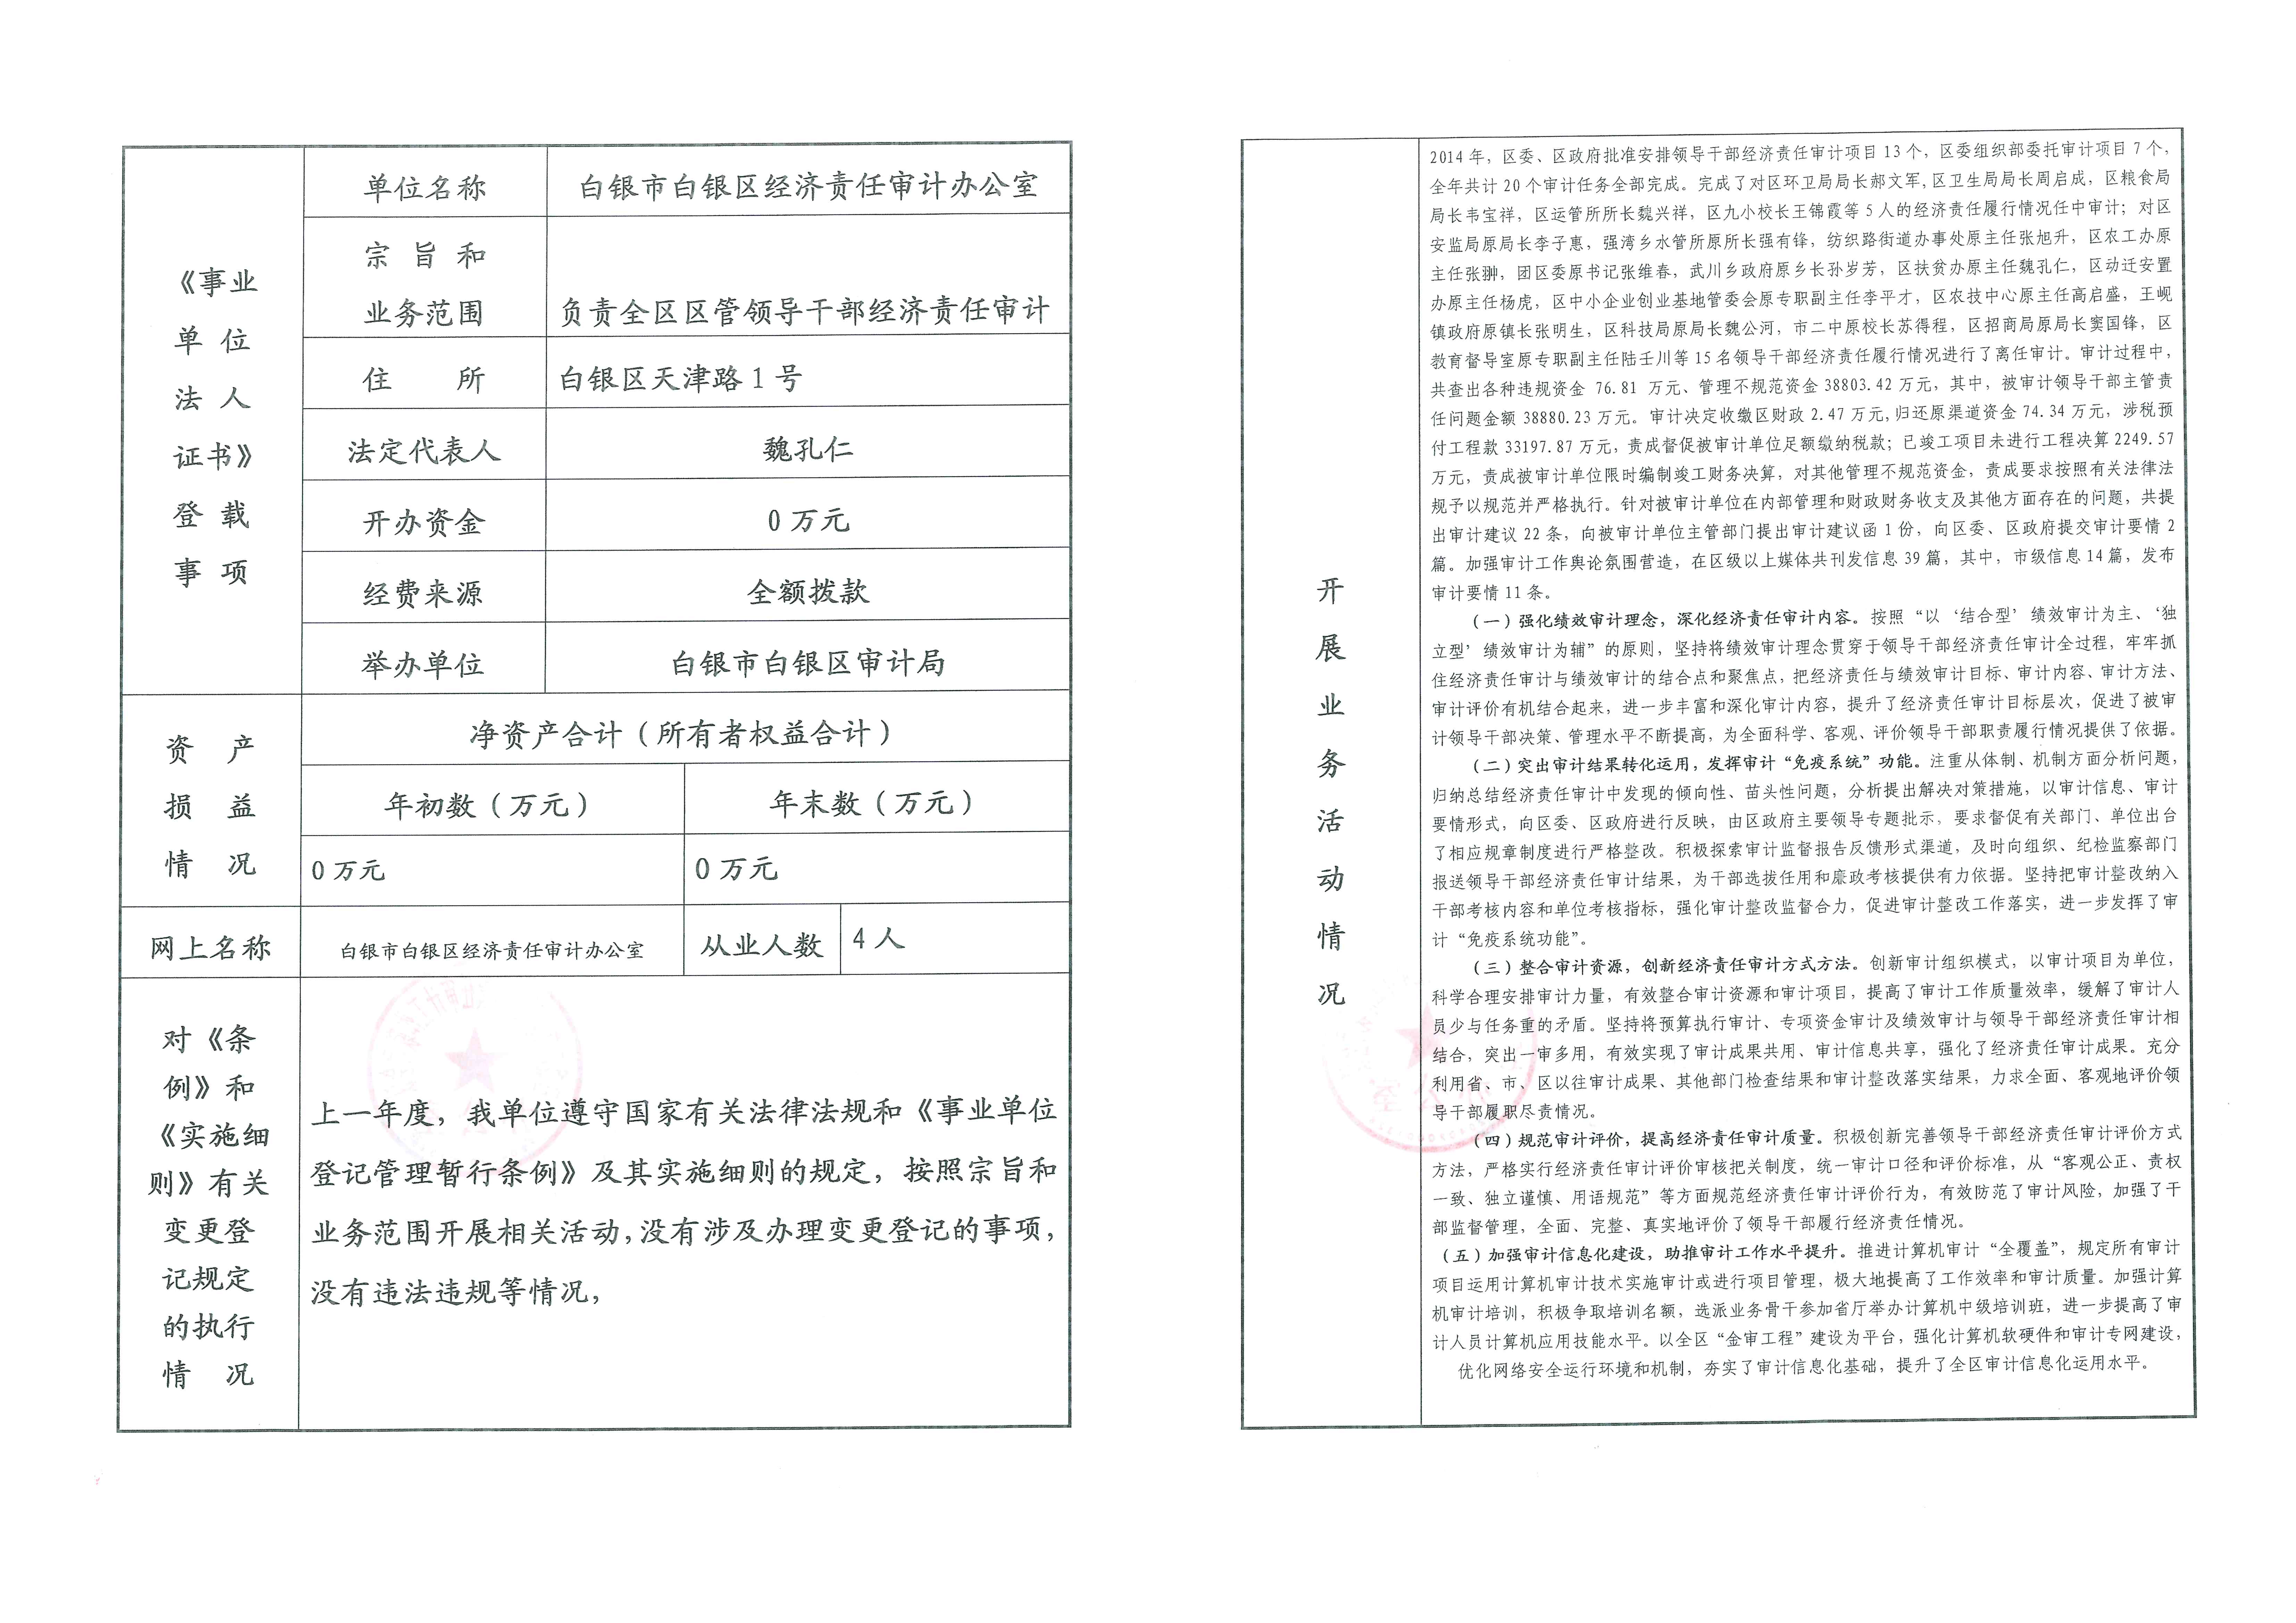 《事业
单 位
法 人
证书》
登 载
事 项
单位名称
白银市白银区经济责任审计办公室
宗 旨 和
业务范围
负责全区区管领导干部经济责任审计
住 所
白银区天津路1号
法定代表人
魏孔仁
开办资金
0万元
经费来源
全额拨款
举办单位
白银市白银区审计局
资 产
损 益
情 况
净资产合计（所有者权益合计）
年初数（万元）
年末数（万元）
0万元
0万元
网上名称
白银市白银区经济责任审计办公室
从业人数
4人
对《条
例》和
《实施细
则》有关
变更登
记规定
的执行
情 况
上一年度，我单位遵守国家有关法律法规和《事业单位
登记管理暂行条例》及其实施细则的规定，按照宗旨和
业务范围开展相关活动，没有涉及办理变更登记的事项，
没有违法违规等情况，
开
展
业
务
活
动
情
况
2014年，区委、区政府批准安排领导干部经济责任审计项目13个，区委组织部委托审计项目7个，
全年共计20个审计任务全部完成。完成了对区环卫局局长郝文军，区卫生局局长周启成，区粮食局
局长韦宝祥，区运管所所长魏兴祥，区九小校长王锦霞等5人的经济责任履行情况任中审计；对区
安监局原局长李子惠，强湾乡水管所原所长强有锋，纺织路街道办事处原主任张旭升，区农工办原
主任张翀，团区委原书记张维春，武川乡政府原乡长孙岁芳，区扶贫办原主任魏孔仁，区动迁安置
办原主任杨虎，区中小企业创业基地管委会原专职副主任李平才，区农技中心原主任高启盛，王岘
镇政府原镇长张明生，区科技局原局长魏公河，市二中原校长苏得程，区招商局原局长窦国锋，区
教育督导室原专职副主任陆壬川等15名领导干部经济责任履行情况进行了离任审计。审计过程中，
共查出各种违规资金 76.81 万元、管理不规范资金38803.42万元，其中，被审计领导干部主管责
任问题金额38880.23万元。审计决定收缴区财政2.47万元，归还原渠道资金74.34万元，涉税预
付工程款33197.87万元，责成督促被审计单位足额缴纳税款；已竣工项目未进行工程决算2249.57
万元，责成被审计单位限时编制竣工财务决算，对其他管理不规范资金，责成要求按照有关法律法
规予以规范并严格执行。针对被审计单位在内部管理和财政财务收支及其他方面存在的问题，共提
出审计建议22条，向被审计单位主管部门提出审计建议函1份，向区委、区政府提交审计要情2
篇。加强审计工作舆论氛围营造，在区级以上媒体共刊发信息39篇，其中，市级信息14篇，发布
审计要情11条。
（一）强化绩效审计理念，深化经济责任审计内容。按照“以‘结合型’绩效审计为主、‘独
立型’绩效审计为辅”的原则，坚持将绩效审计理念贯穿于领导干部经济责任审计全过程，牢牢抓
住经济责任审计与绩效审计的结合点和聚焦点，把经济责任与绩效审计目标、审计内容、审计方法、
审计评价有机结合起来，进一步丰富和深化审计内容，提升了经济责任审计目标层次，促进了被审
计领导干部决策、管理水平不断提高，为全面科学、客观、评价领导干部职责履行情况提供了依据。
（二）突出审计结果转化运用，发挥审计“免疫系统”功能。注重从体制、机制方面分析问题，
归纳总结经济责任审计中发现的倾向性、苗头性问题，分析提出解决对策措施，以审计信息、审计
要情形式，向区委、区政府进行反映，由区政府主要领导专题批示，要求督促有关部门、单位出台
了相应规章制度进行严格整改。积极探索审计监督报告反馈形式渠道，及时向组织、纪检监察部门
报送领导干部经济责任审计结果，为干部选拔任用和廉政考核提供有力依据。坚持把审计整改纳入
干部考核内容和单位考核指标，强化审计整改监督合力，促进审计整改工作落实，进一步发挥了审
计“免疫系统功能”。
（三）整合审计资源，创新经济责任审计方式方法。创新审计组织模式，以审计项目为单位，
科学合理安排审计力量，有效整合审计资源和审计项目，提高了审计工作质量效率，缓解了审计人
员少与任务重的矛盾。坚持将预算执行审计、专项资金审计及绩效审计与领导干部经济责任审计相
结合，突出一审多用，有效实现了审计成果共用、审计信息共享，强化了经济责任审计成果。充分
利用省、市、区以往审计成果、其他部门检查结果和审计整改落实结果，力求全面、客观地评价领
导干部履职尽责情况。
（四）规范审计评价，提高经济责任审计质量。积极创新完善领导干部经济责任审计评价方式
方法，严格实行经济责任审计评价审核把关制度，统一审计口径和评价标准，从“客观公正、责权
一致、独立谨慎、用语规范”等方面规范经济责任审计评价行为，有效防范了审计风险，加强了干
部监督管理，全面、完整、真实地评价了领导干部履行经济责任情况。
（五）加强审计信息化建设，助推审计工作水平提升。推进计算机审计“全覆盖”，规定所有审计
项目运用计算机审计技术实施审计或进行项目管理，极大地提高了工作效率和审计质量。加强计算
机审计培训，积极争取培训名额，选派业务骨干参加省厅举办计算机中级培训班，进一步提高了审
计人员计算机应用技能水平。以全区“金审工程”建设为平台，强化计算机软硬件和审计专网建设，
优化网络安全运行环境和机制，夯实了审计信息化基础，提升了全区审计信息化运用水平。